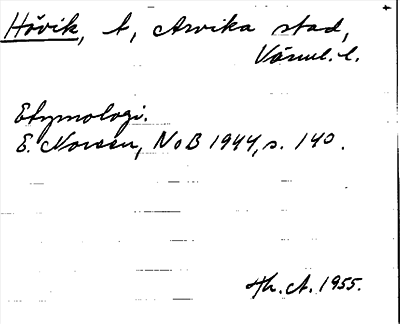 Hövik, t, Arvika stad,
Värml. l.
Etymologi.
E. Noreen, NoB 1944, s. 140.
Th. A. 1955.